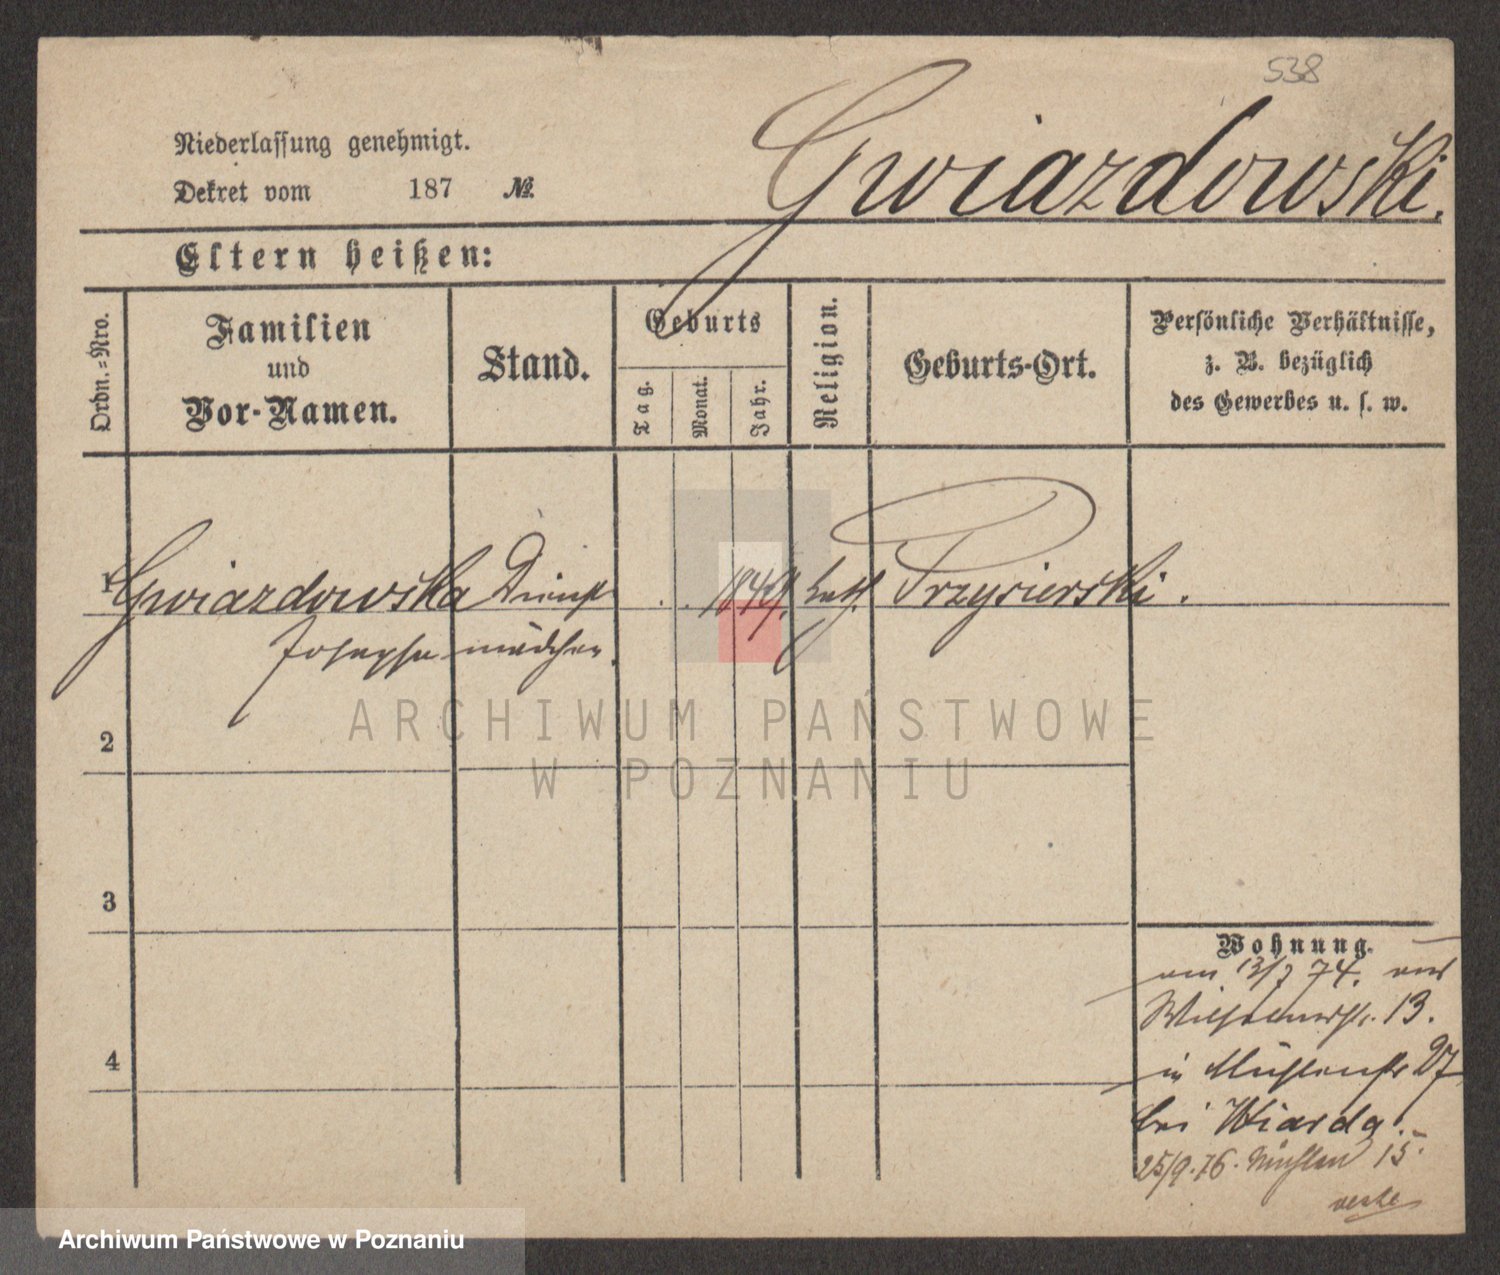 538
Gwiazdowski.
Niederlassung genehmigt.
Dekret vom 187 №.
Eltern heißen:
Ordn.-Nro.
Familien
und
Vor-Namen.
Stand.
Geburts
Tag.
Monat.
Jahr.
Religion.
Geburts-Ort.
Persönliche Verhältnisse,
z. B. bezüglich
des Gewerbes u. s. w.
1 Gwiazdowska Dienst . . 1849. kath. Przysierski.
Josepha mädchen.
2
3
4
Wohnung.
am 13/7 74. aus
Wilhelmstr. 13.
in Mühlenstr 27
bei Wiarda.
25/9.76. Mühlen 15.
ARCHIWUM PAŃSTWOWE
W POZNANIU
Archiwum Państwowe w Poznaniu